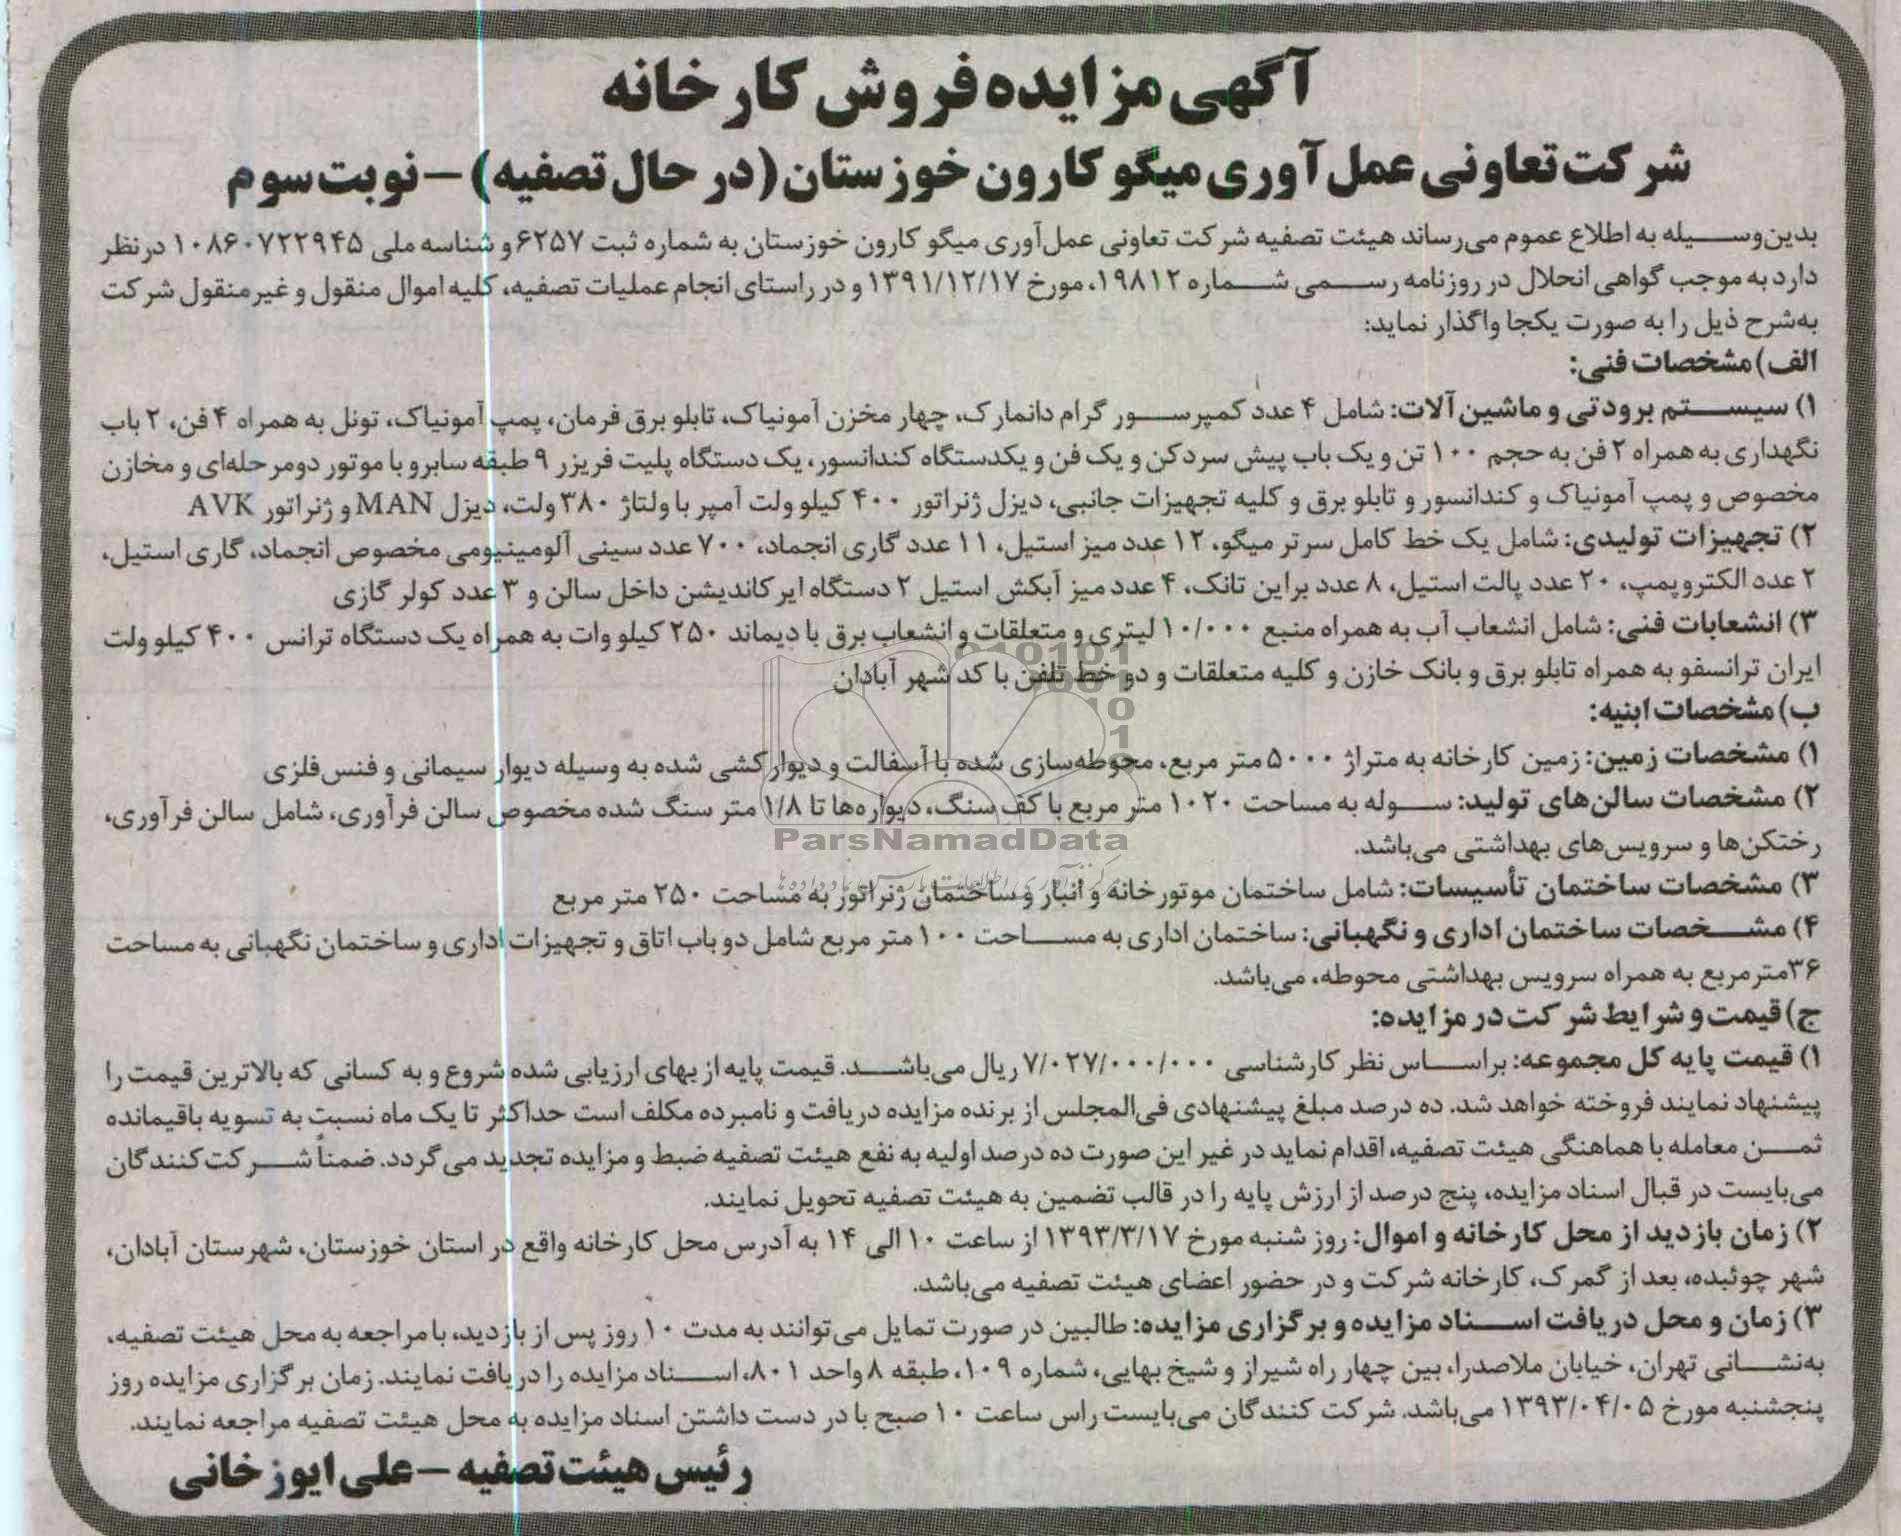 آگهی مزایده فروش کارخانه
شرکت تعاونی عمل‌آوری میگو کارون خوزستان (در حال تصفیه) – نوبت سوم
بدین‌وسیله به اطلاع عموم می‌رساند هیئت تصفیه شرکت تعاونی عمل‌آوری میگو کارون خوزستان به شماره ثبت ۶۲۵۷ و شناسه ملی ۱۰۸۶۰۷۲۲۹۴۵ درنظر
دارد به موجب گواهی انحلال در روزنامه رسمی شماره ۱۹۸۱۲، مورخ ۱۳۹۱/۱۲/۱۷ و در راستای انجام عملیات تصفیه، کلیه اموال منقول و غیرمنقول شرکت
به‌شرح ذیل را به صورت یکجا واگذار نماید:
الف) مشخصات فنی:
۱) سیستم برودتی و ماشین آلات: شامل ۴ عدد کمپرسور گرام دانمارک، چهار مخزن آمونیاک، تابلو برق فرمان، پمپ آمونیاک، تونل به همراه ۴ فن، ۲ باب
نگهداری به همراه ۲ فن به حجم ۱۰۰ تن و یک باب پیش سردکن و یک فن و یکدستگاه کندانسور، یک دستگاه پلیت فریزر ۹ طبقه سابرو با موتور دومرحله‌ای و مخازن
مخصوص و پمپ آمونیاک و کندانسور و تابلو برق و کلیه تجهیزات جانبی، دیزل ژنراتور ۴۰۰ کیلو ولت آمپر با ولتاژ ۳۸۰ ولت، دیزل MAN و ژنراتور AVK
۲) تجهیزات تولیدی: شامل یک خط کامل سرتر میگو، ۱۲ عدد میز استیل، ۱۱ عدد گاری انجماد، ۷۰۰ عدد سینی آلومینیومی مخصوص انجماد، گاری استیل،
۲ عدد الکتروپمپ، ۲۰ عدد پالت استیل، ۸ عدد براین تانک، ۴ عدد میز آبکش استیل ۲ دستگاه ایرکاندیشن داخل سالن و ۳ عدد کولر گازی
۳) انشعابات فنی: شامل انشعاب آب به همراه منبع ۱۰/۰۰۰ لیتری و متعلقات و انشعاب برق با دیماند ۲۵۰ کیلو وات به همراه یک دستگاه ترانس ۴۰۰ کیلو ولت
ایران ترانسفو به همراه تابلو برق و بانک خازن و کلیه متعلقات و دو خط تلفن با کد شهر آبادان
ب) مشخصات ابنیه:
۱) مشخصات زمین: زمین کارخانه به متراژ ۵۰۰۰ متر مربع، محوطه‌سازی شده با آسفالت و دیوارکشی شده به وسیله دیوار سیمانی و فنس فلزی
۲) مشخصات سالن‌های تولید: سوله به مساحت ۱۰۲۰ متر مربع با کف سنگ، دیواره‌ها تا ۱/۸ متر سنگ شده مخصوص سالن فرآوری، شامل سالن فرآوری،
ParsNamadData
رختکن‌ها و سرویس‌های بهداشتی می‌باشد.
۳) مشخصات ساختمان تأسیسات: شامل ساختمان موتورخانه و انبار و ساختمان ژنراتور به مساحت ۲۵۰ متر مربع
۴) مشخصات ساختمان اداری و نگهبانی: ساختمان اداری به مساحت ۱۰۰ متر مربع شامل دو باب اتاق و تجهیزات اداری و ساختمان نگهبانی به مساحت
۳۶مترمربع به همراه سرویس بهداشتی محوطه، می‌باشد.
ج) قیمت و شرایط شرکت در مزایده:
۱) قیمت پایه کل مجموعه: براساس نظر کارشناسی ۷/۰۲۷/۰۰۰/۰۰۰ ریال می‌باشد. قیمت پایه از بهای ارزیابی شده شروع و به کسانی که بالاترین قیمت را
پیشنهاد نمایند فروخته خواهد شد. ده درصد مبلغ پیشنهادی فی‌المجلس از برنده مزایده دریافت و نامبرده مکلف است حداکثر تا یک ماه نسبت به تسویه باقیمانده
ثمن معامله با هماهنگی هیئت تصفیه، اقدام نماید در غیر این صورت ده درصد اولیه به نفع هیئت تصفیه ضبط و مزایده تجدید می‌گردد. ضمناً شرکت‌کنندگان
می‌بایست در قبال اسناد مزایده، پنج درصد از ارزش پایه را در قالب تضمین به هیئت تصفیه تحویل نمایند.
۲) زمان بازدید از محل کارخانه و اموال: روز شنبه مورخ ۱۳۹۳/۳/۱۷ از ساعت ۱۰ الی ۱۴ به آدرس محل کارخانه واقع در استان خوزستان، شهرستان آبادان،
شهر چوئبده، بعد از گمرک، کارخانه شرکت و در حضور اعضای هیئت تصفیه می‌باشد.
۳) زمان و محل دریافت اسناد مزایده و برگزاری مزایده: طالبین در صورت تمایل می‌توانند به مدت ۱۰ روز پس از بازدید، با مراجعه به محل هیئت تصفیه،
به‌نشانی تهران، خیابان ملاصدرا، بین چهار راه شیراز و شیخ بهایی، شماره ۱۰۹، طبقه ۸ واحد ۸۰۱، اسناد مزایده را دریافت نمایند. زمان برگزاری مزایده روز
پنجشنبه مورخ ۱۳۹۳/۰۴/۰۵ می‌باشد. شرکت کنندگان می‌بایست راس ساعت ۱۰ صبح با در دست داشتن اسناد مزایده به محل هیئت تصفیه مراجعه نمایند.
رئیس هیئت تصفیه – علی ایوزخانی